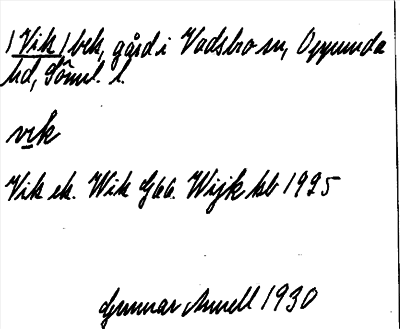 /Vik/bek, gård i Vadsbro sn, Oppunda
hd, Söml. l.
vik
Vik ek. Wik Gbb. Wijk kb 1995
Gunnar 1930